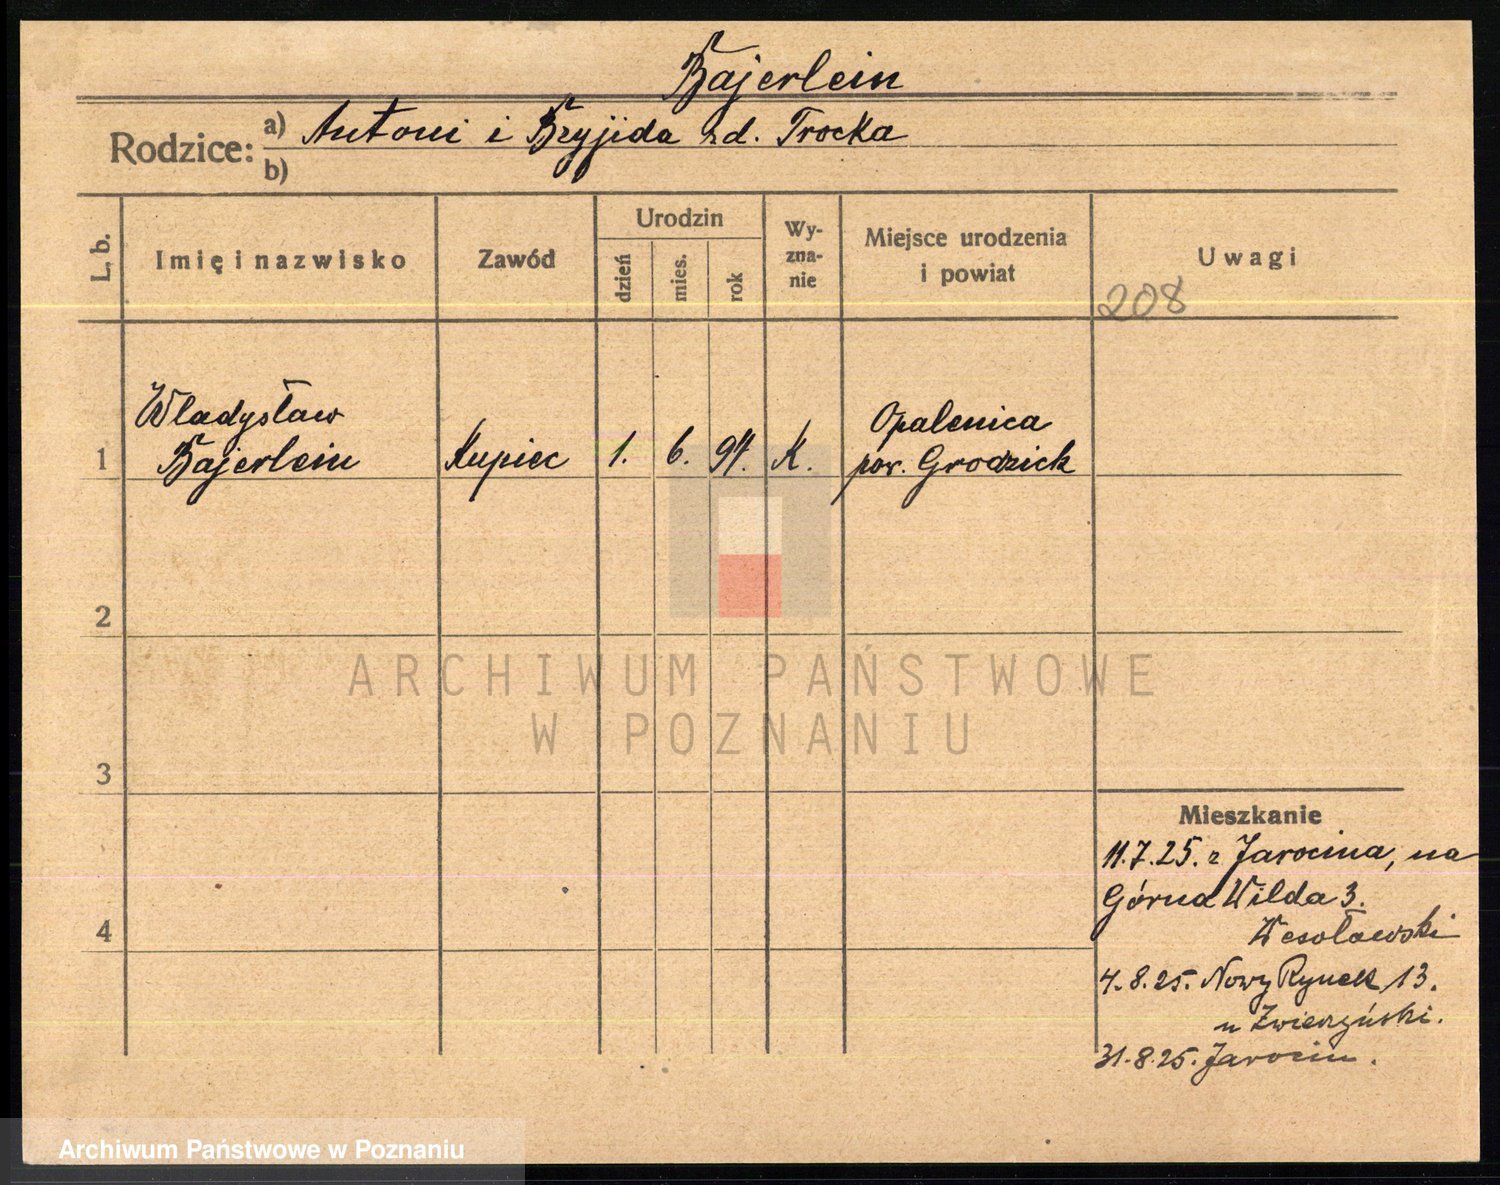 Bajerlein
Rodzice: a) Antoni i Bryjida zd. Trocka
b)
L. b.
Imię i nazwisko
Zawód
Urodzin
dzień
mies.
rok
Wy-
zna-
nie
Miejsce urodzenia
i powiat
Uwagi
208
Władysław
Bajerlein
1
Kupiec
1. 6. 94. K.
Opalenica
pow. Grodzick
2
ARCHIWUM PAŃSTWOWE
W POZNANIU
3
4
Mieszkanie
11.7.25. z Jarocina, na
Górna Wilda 3.
Wesołowski
4.8.25. Nowy Rynek 13.
u
31.8.25. Jarocin.
Archiwum Państwowe w Poznaniu